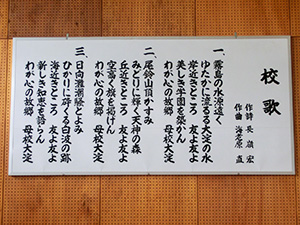 校歌
作詩 長嶺宏
作曲 海老原直
一、霧島の水源遠く
ゆたかに流るる大淀の水
岸近きところ 友よ友よ
美しき学園を築かん
わが心の故郷 母校大淀
二、尾鈴山頂かすみ
みどりに輝く天神の森
丘近きところ 友よ友よ
空高く旗を掲げん
わが心の故郷 母校大淀
三、日向灘潮騒とよみ
ひかりに砕くる白波の跡
海近きところ 友よ友よ
新しき知恵を語らん
わが心の故郷 母校大淀